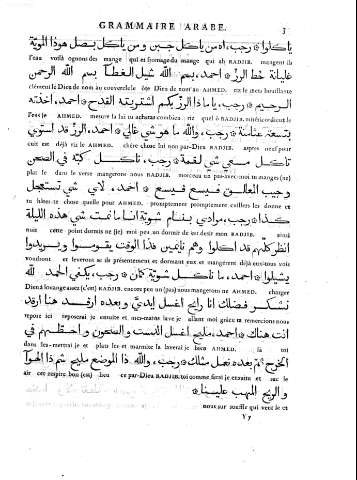 GRAMMAIRE ARABE. 3
ياكلوا * رجب، اه من ياكل جبن ومن ياكل بصل هوذا المويّة
l'eau voilà ognons des mange qui et fromage du mange qui ah RADJIB. mangent ils
غليانة حط الرز * احمد، بسم الله شيل الغطا * بسم الله الرحمن
clément le Dieu de nom au couvercle le ôte Dieu de nom au AHMED. riz le mets bouillante
الرحيم * رجب، يا ماذا الرز بكم اشتريته القدح * احمد، اخذته
l'eus je AHMED. mesure la lu acheras combien riz quel ô RADJIB. miséricordieux le
بتسعة عثامنة * رجب، والله ما هو شي غالي * احمد، الرز قد استوي
cuit est déjà riz le AHMED. chère chose lui non par-Dieu RADJIB. aspres neuf pour
تاكل معي شي لقمة * رجب، ناكل كبّة في الصحن
plat le dans le verse mangerons nous RADJIB. morceau un pas avec-moi tu manges (ne)
وجيب المعالق فيسع فيسع * احمد، لاي شي تستعجل
tu hâtes-te chose quelle pour AHMED. promptement promptement cuillers les donne et
كذا * رجب، مرادي بنام شويّة انا ما نمت شي هذه الليلة
nuit cette point dormis ne (je) moi peu un dormir de est désir mon RADJIB. ainsi
انظر كلّهم قد اكلوا وهم نايمين فذا الوقت يقوموا ويريدوا
voudront et leveront se ils présentement et dorment eux et mangèrent déjà eux-tous vois
يشيلوا * احمد، ما ناكل شويّة كمان * رجب، يكفي الحمد لله
Dieu à louange assez (c'est) RADJIB. encore peu un nous mangerons ne AHMED. charger
نشكر فضلك انا رايح اغسل ايديّ وبعده ارقد هنا ارقد
repose ici reposerai je ensuite et mains-mes laver je allant moi grâce ta remercions nous
انت هناك * احمد، مليح اغسل الدست والصحون واحطهم في
dans les-mettrai je et plats les et marmite la laverai je bien AHMED. là toi
الخرج ثم بعده نعمل مثلك * رجب، والله ذا الموضع مليح شم ذا الهوا
air cet respire bon (est) lieu ce par-Dieu RADJIB. toi comme ferai je ensuite et sac le
والريح المهب علينا *
nous sur souffle qui vent le et
Y y